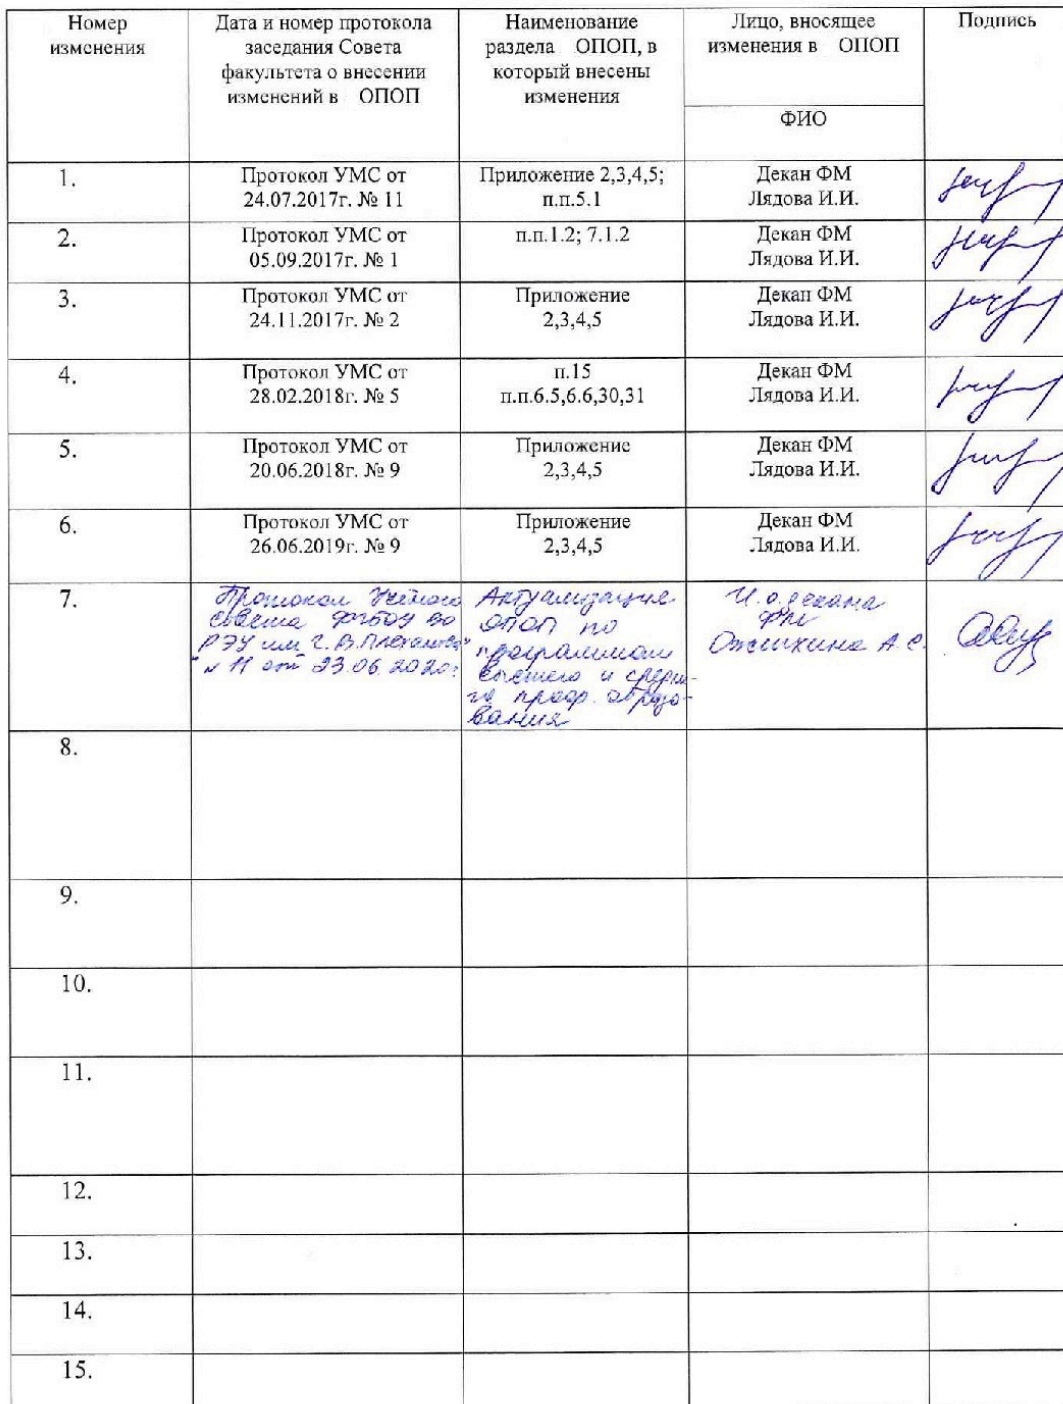 Номер
изменения
Дата и номер протокола
заседания Совета
факультета о внесении
изменений в ОПОП
Наименование
раздела ОПОП, в
который внесены
изменения
Лицо, вносящее
изменения в ОПОП
ФИО
Подпись
1.
Протокол УМС от
24.07.2017г. № 11
Приложение 2,3,4,5;
п.п.5.1
Декан ФМ
Лядова И.И.
2.
Протокол УМС от
05.09.2017г. № 1
п.п.1.2; 7.1.2
Декан ФМ
Лядова И.И.
3.
Протокол УМС от
24.11.2017г. № 2
Приложение
2,3,4,5
Декан ФМ
Лядова И.И.
4.
Протокол УМС от
28.02.2018г. № 5
п.15
п.п.6.5,6.6,30,31
Декан ФМ
Лядова И.И.
5.
Протокол УМС от
20.06.2018г. № 9
Приложение
2,3,4,5
Декан ФМ
Лядова И.И.
6.
Протокол УМС от
26.06.2019г. № 9
Приложение
2,3,4,5
Декан ФМ
Лядова И.И.
7.
Протокол Учёного
совета ФГБОУ ВО
РЭУ им. Г.В.Плеханова"
№ 11 от 23.06.2020г
Актуализация
ОПОП по
программам
высшего и средне-
го проф. образо-
вания
И.о. декана
ФМ
А.С.
8.
9.
10.
11.
12.
13.
14.
15.